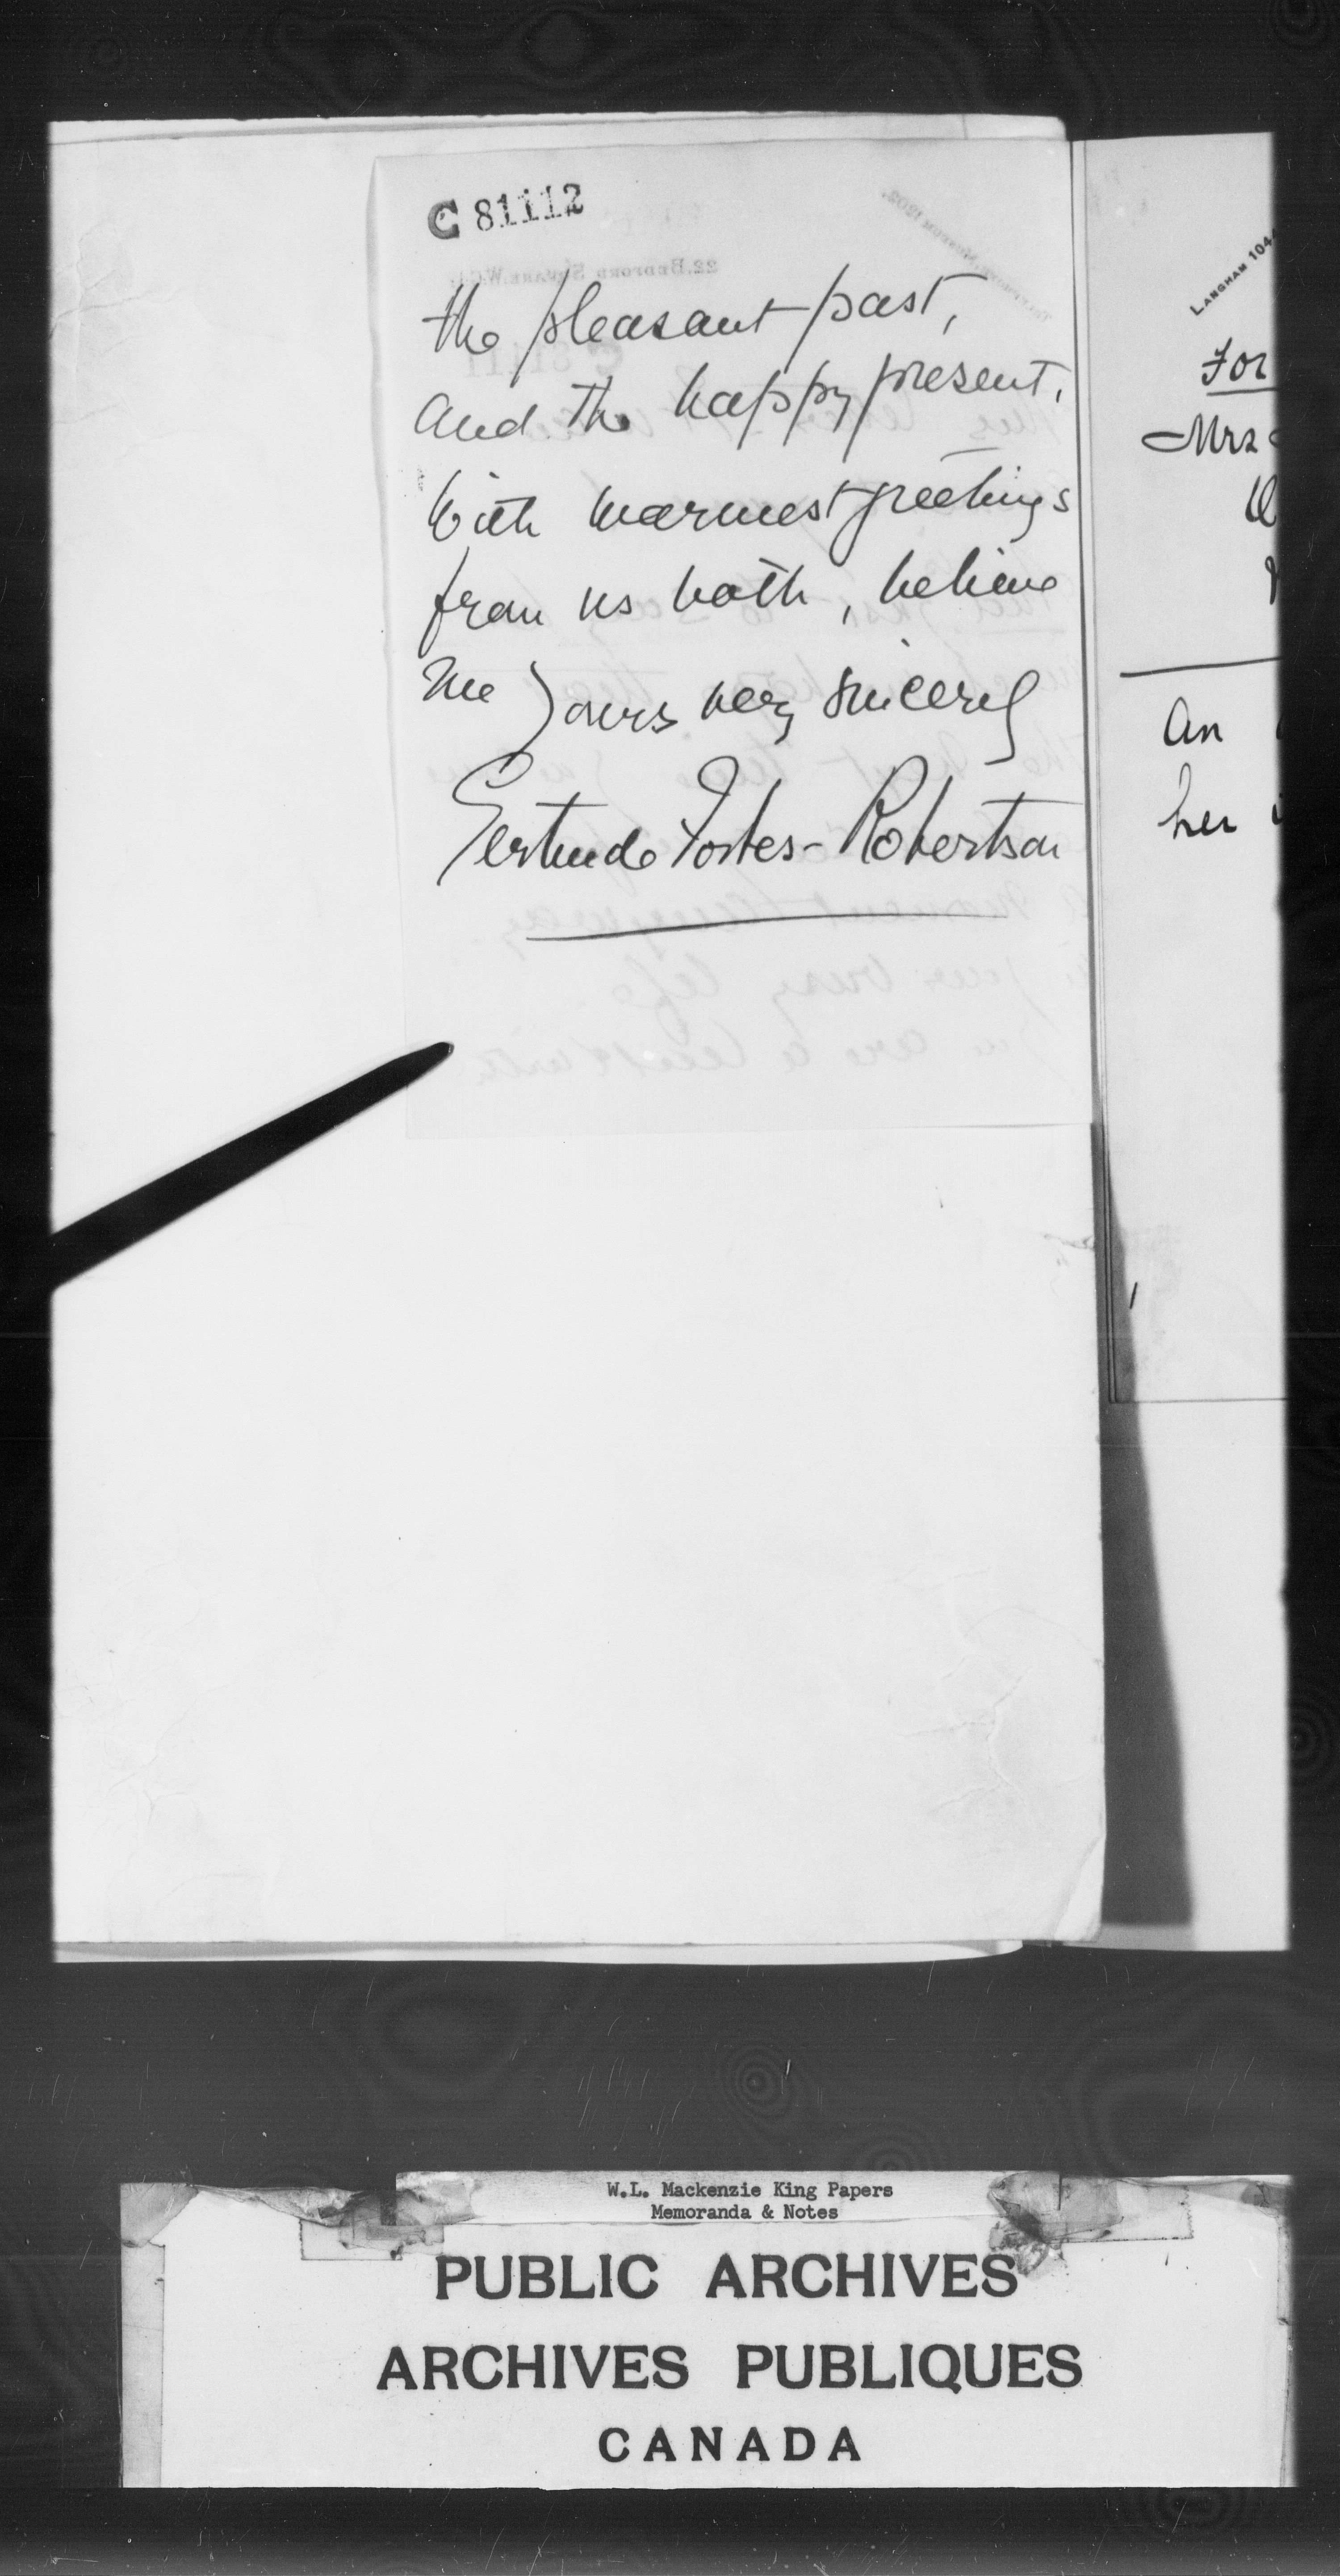 C 81112
the pleasant past,
and the happy present.
With warmest greetings
from us both, believe
me yours very sincerely
Gertrude Forbes-Robertson
LANGHAM 104
For
Mrs
An
her
W.L. Mackenzie King Papers
Memoranda & Notes
PUBLIC ARCHIVES
ARCHIVES PUBLIQUES
CANADA